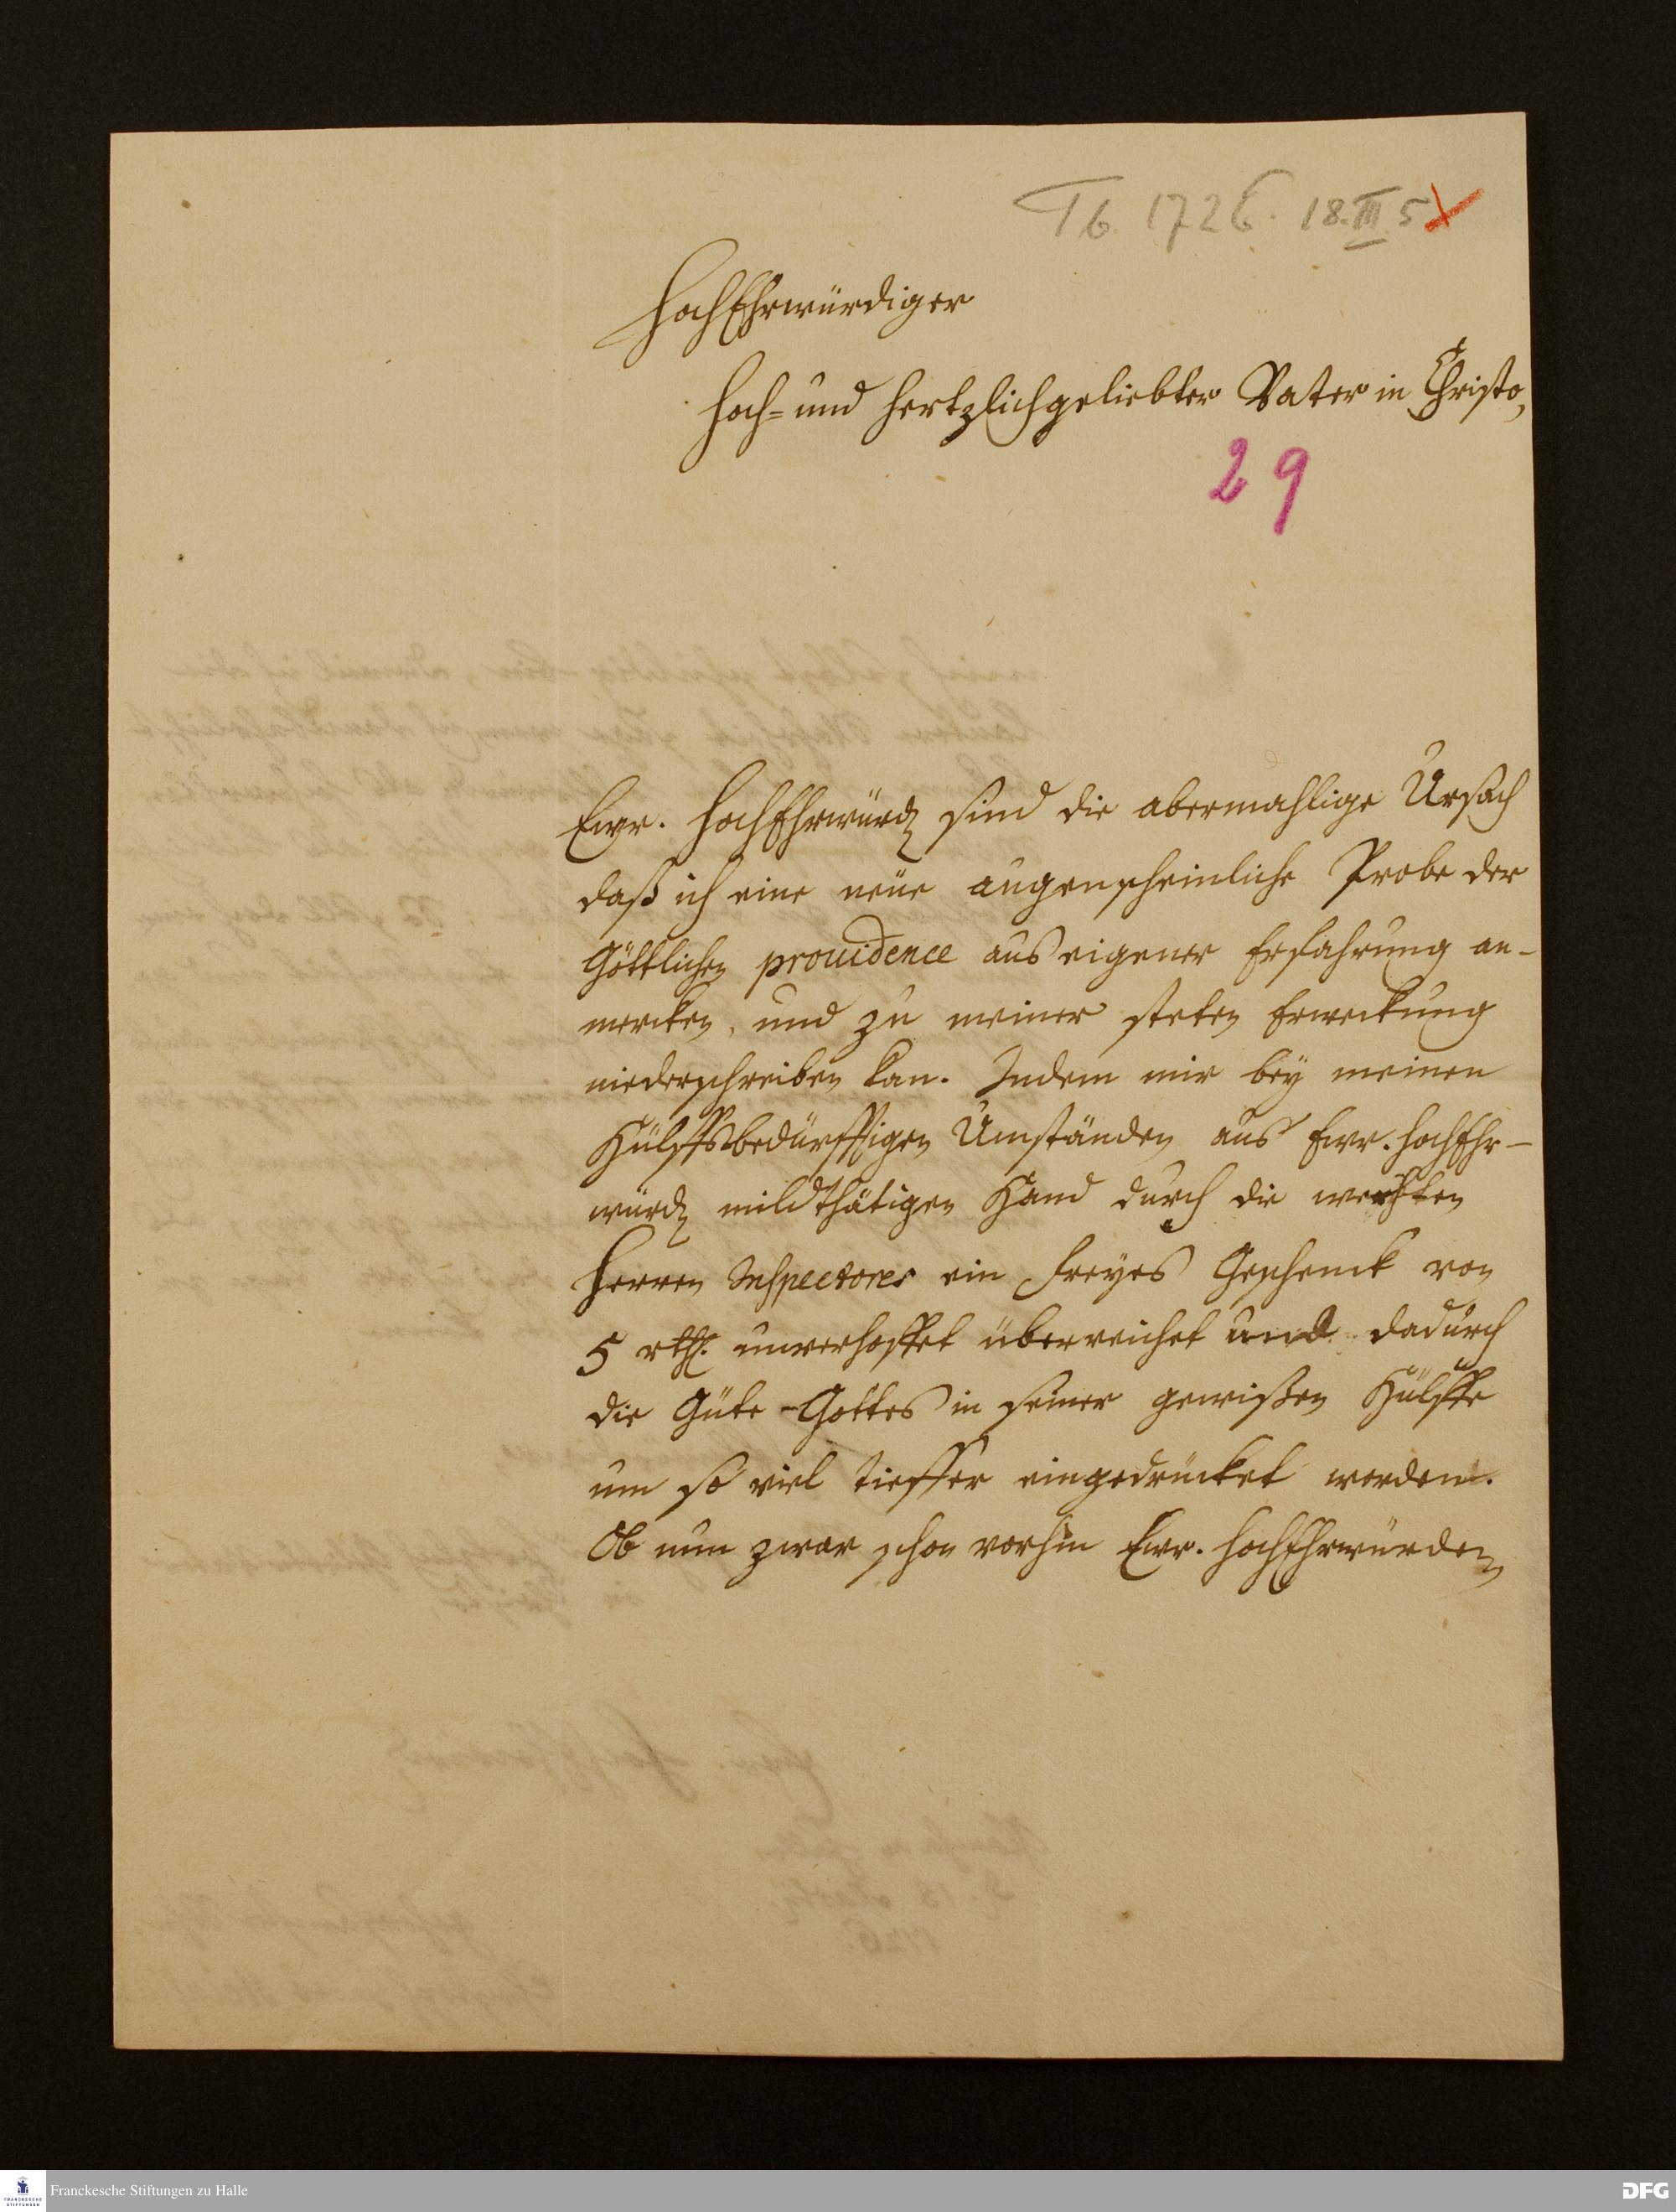 Tb. 1726. 18.III 5
HochEhrwürdiger
Hoch- und Hertzlichgeliebter Vater in Christo,
29
Ewr. HochEhrwürd sind die abermahlige Ursach
daß ich eine neüe augenscheinliche Probe der
Göttlichen prouidence aus eigener Erfahrung an-
mercken, und zu meiner steten Erweckung
niederschreiben kan. Indem mir bey meinen
Hülffsbedürfftigen Umständen aus Ewr. HochEhr-
würd mildthätigen Hand durch die werthen
Herren Inspectores ein freyes Geschenck von
5 rthl. unverhoffet überreichet und dadurch
die Güte Gottes in seiner gewißen Hülffe
um so viel tieffer eingedrücket worden.
Ob nun zwar schon vorhin Ewr. HochEhrwürden
Franckesche Stiftungen zu Halle
FRANCKESCHE
STIFTUNGEN
DFG